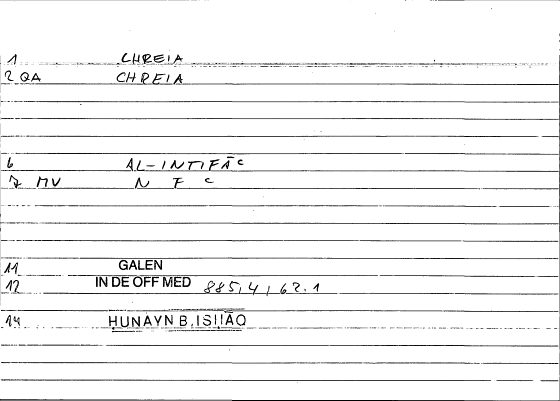 1 CHREIA
2 QA CHREIA
6 AL-INTIFĀ ͨ
7 MV N F ͨ
11 GALEN
12 IN DE OFF MED 885,4,62.1
14 HUNAYN B. ISḤĀQ